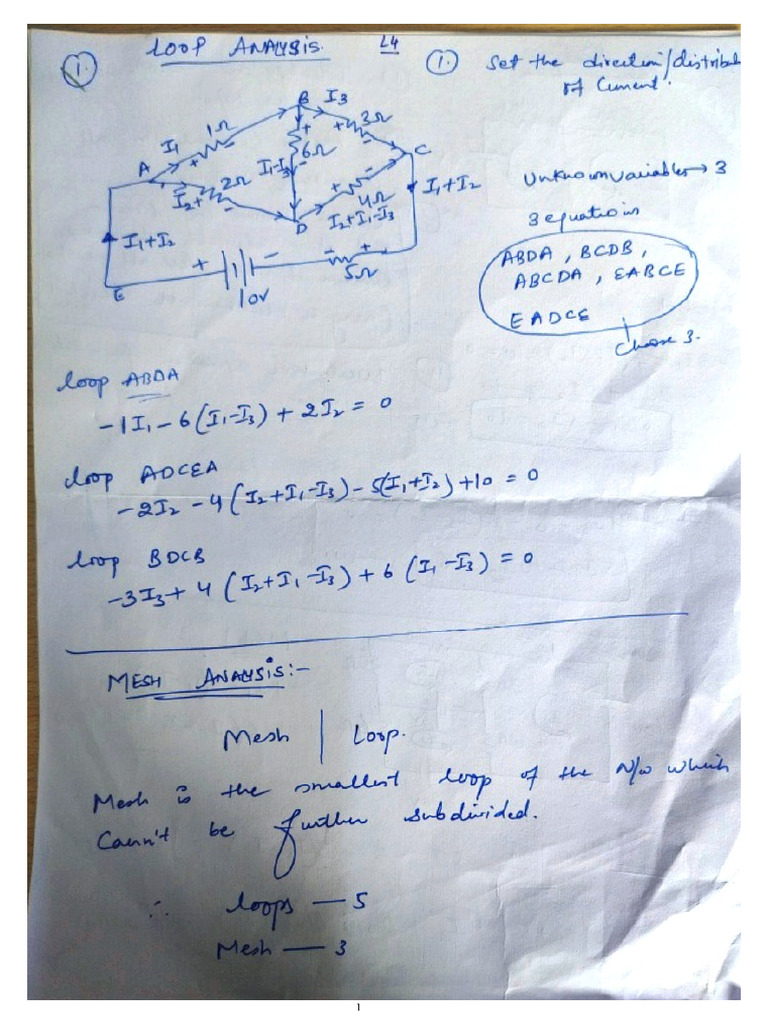 1.
LOOP ANALYSIS.
L4
1. Set the direction/distribu
of Current.
B
I3
I1
1Ω
+
-
+
3Ω
-
A
I1-I3
+
6Ω
-
C
I2
+
2Ω
-
+
4Ω
-
I2+I1-I3
D
I1+I2
I1+I2
+
-
-
+
5Ω
10V
E
Unknown variables → 3
3 equations
ABDA, BCDB,
ABCDA, EABCE
EADCE
Choose 3.
loop ABDA
-1I1 - 6(I1-I3) + 2I2 = 0
loop ADCEA
-2I2 - 4(I2+I1-I3) - 5(I1+I2) + 10 = 0
loop BDCB
-3I3 + 4(I2+I1-I3) + 6(I1-I3) = 0
MESH ANALYSIS:-
Mesh | Loop.
Mesh is the smallest loop of the N/w which
Cann't be further subdivided.
∴ loops — 5
Mesh — 3
1